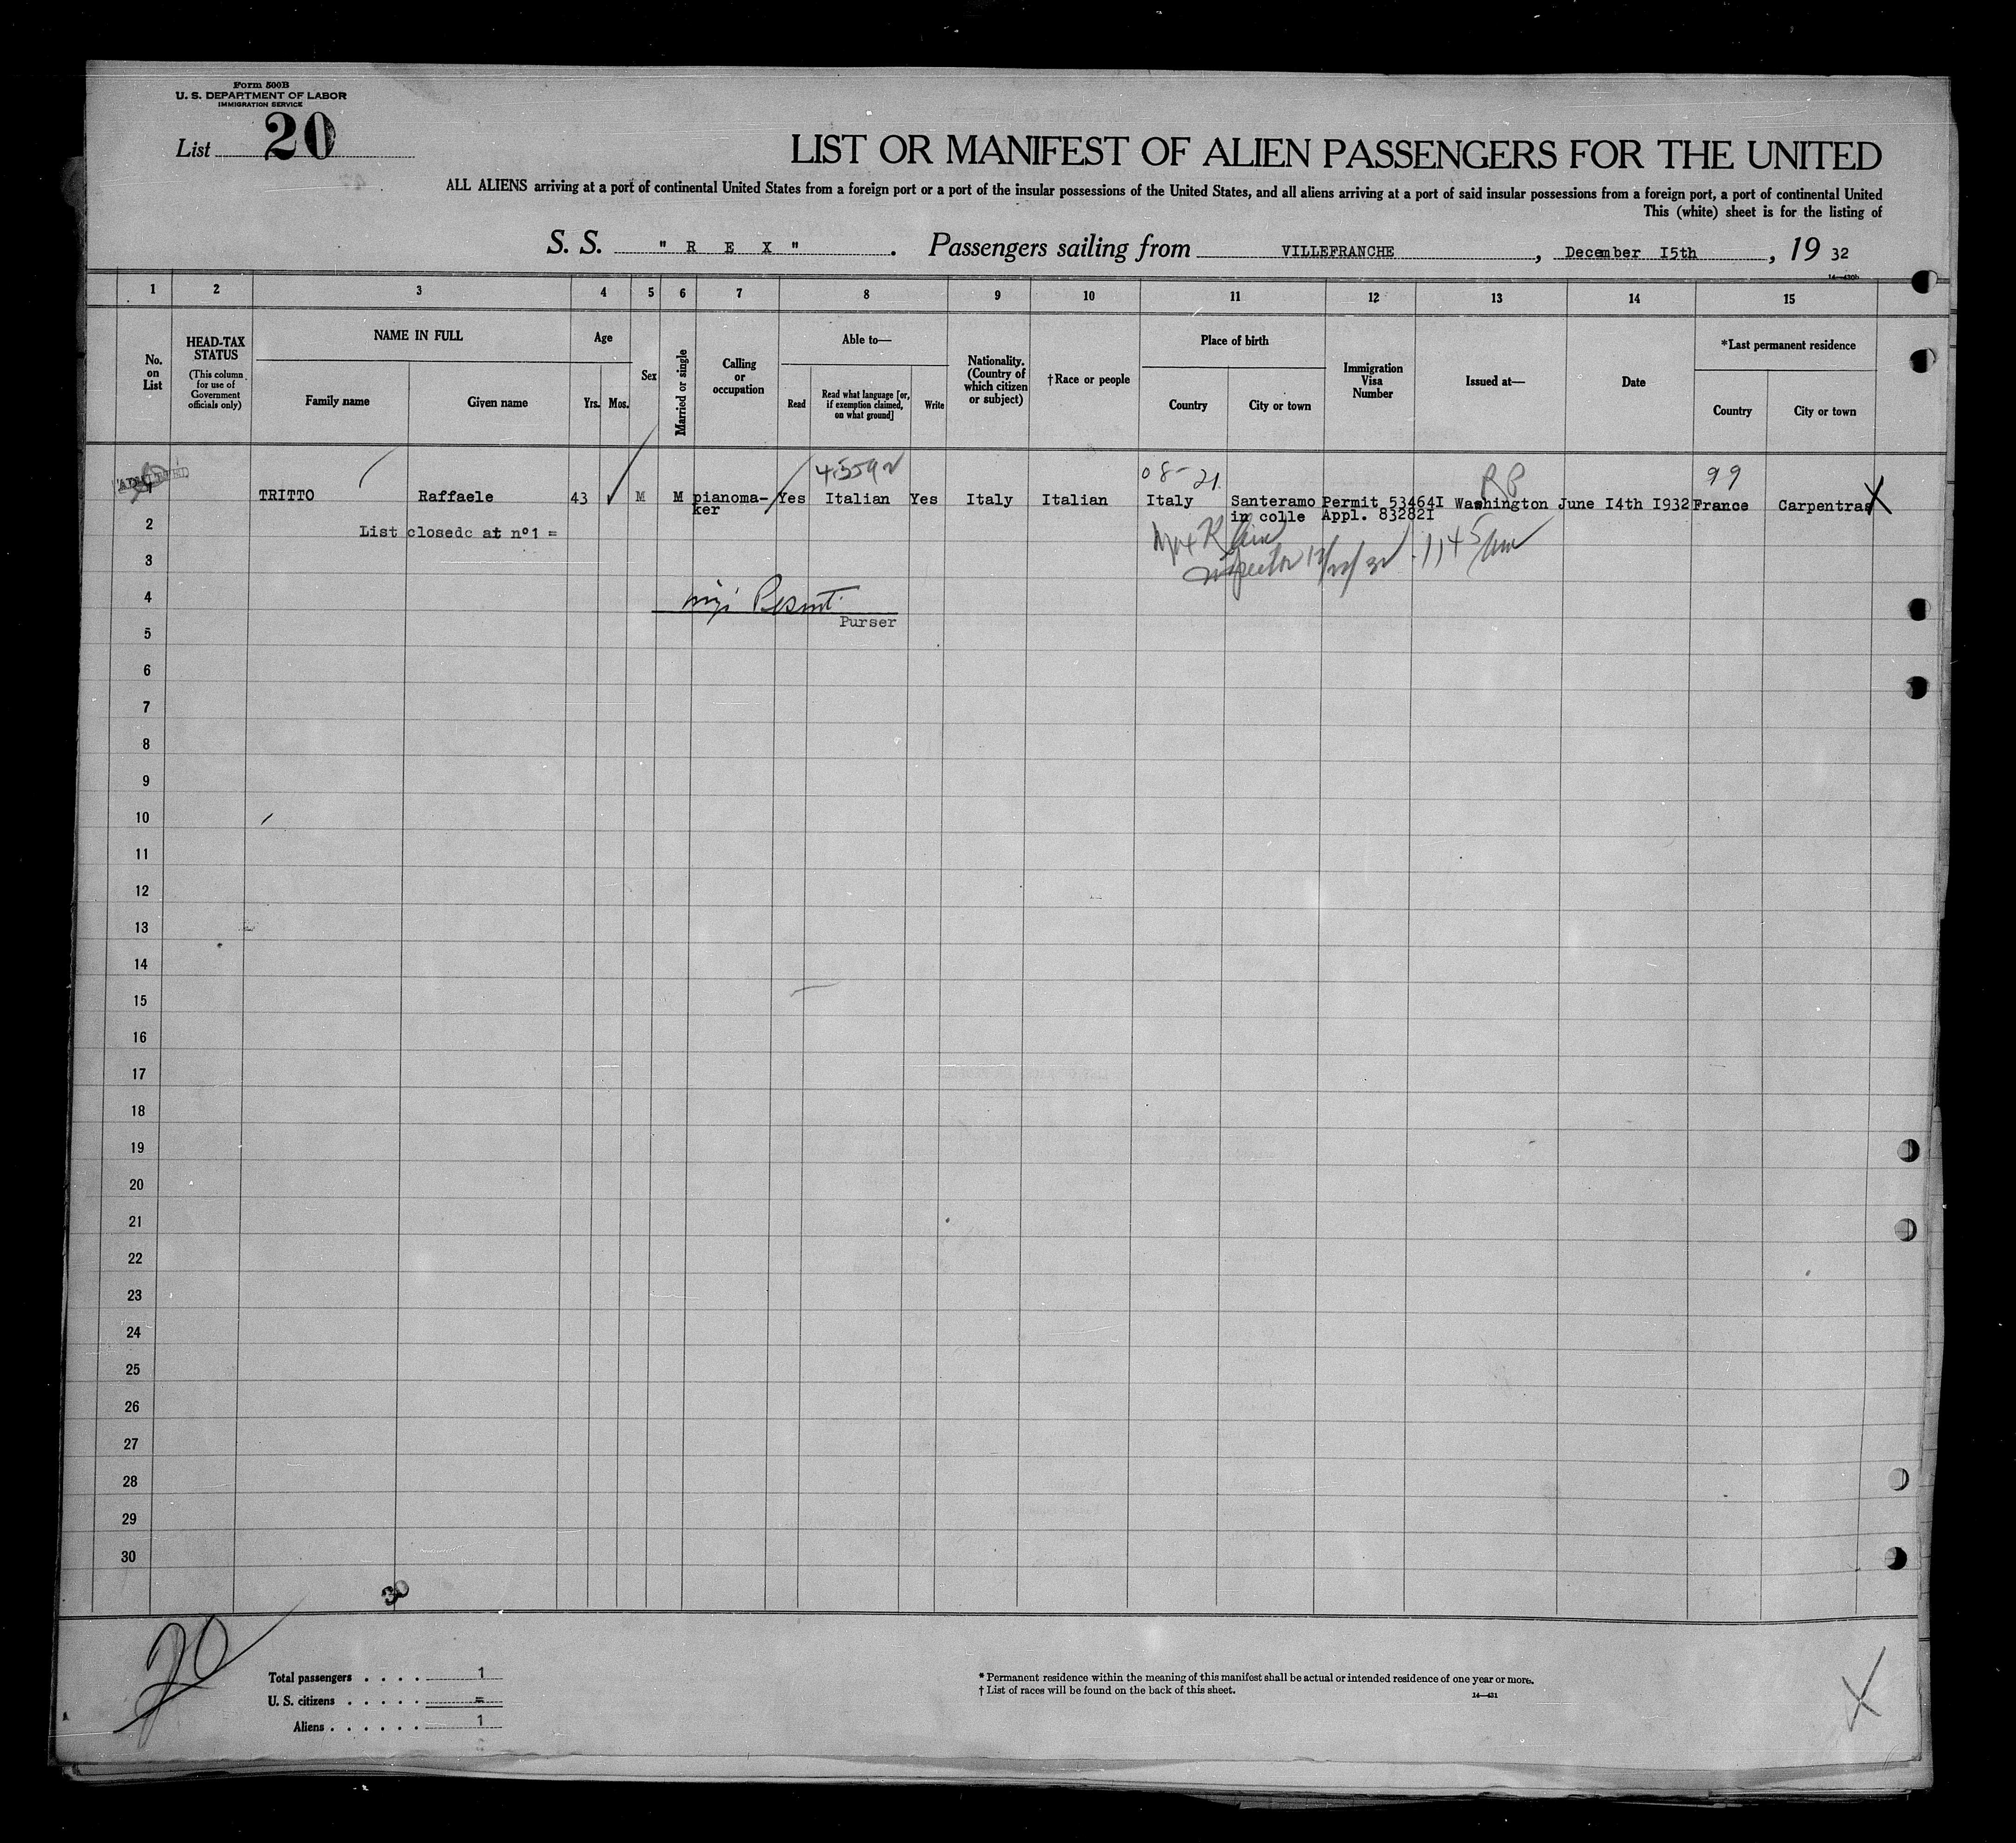 Form 500B
U. S. DEPARTMENT OF LABOR
IMMIGRATION SERVICE
List 20
LIST OR MANIFEST OF ALIEN PASSENGERS FOR THE UNITED
ALL ALIENS arriving at a port of continental United States from a foreign port or a port of the insular possessions of the United States, and all aliens arriving at a port of said insular possessions from a foreign port, a port of continental United
This (white) sheet is for the listing of
S. S. " R E X " . Passengers sailing from VILLEFRANCHE , December I5th , 19 32
14—430b
1 2 3 4 5 6 7 8 9 10 11 12 13 14 15
No. on List
HEAD-TAX STATUS
(This column for use of Government officials only)
NAME IN FULL
Family name
Given name
Age
Yrs. Mos.
Sex
Married or single
Calling or occupation
Able to—
Read
Read what language [or, if exemption claimed, on what ground]
Write
Nationality. (Country of which citizen or subject)
†Race or people
Place of birth
Country
City or town
Immigration Visa Number
Issued at—
Date
*Last permanent residence
Country
City or town
08-21
99
TRITTO Raffaele 43 M M pianoma- Yes Italian Yes Italy Italian Italy Santeramo Permit 53464I Washington June I4th I932 France Carpentras X
ker in colle Appl. 83282I
2
List closedc at n°1 =
3
Inspector
4
Purser
5
6
7
8
9
10
11
12
13
14
15
16
17
18
19
20
21
22
23
24
25
26
27
28
29
30
30
20
Total passengers . . . . 1
U. S. citizens . . . . . =
Aliens . . . . . . 1
* Permanent residence within the meaning of this manifest shall be actual or intended residence of one year or more.
† List of races will be found on the back of this sheet.
14—431
X